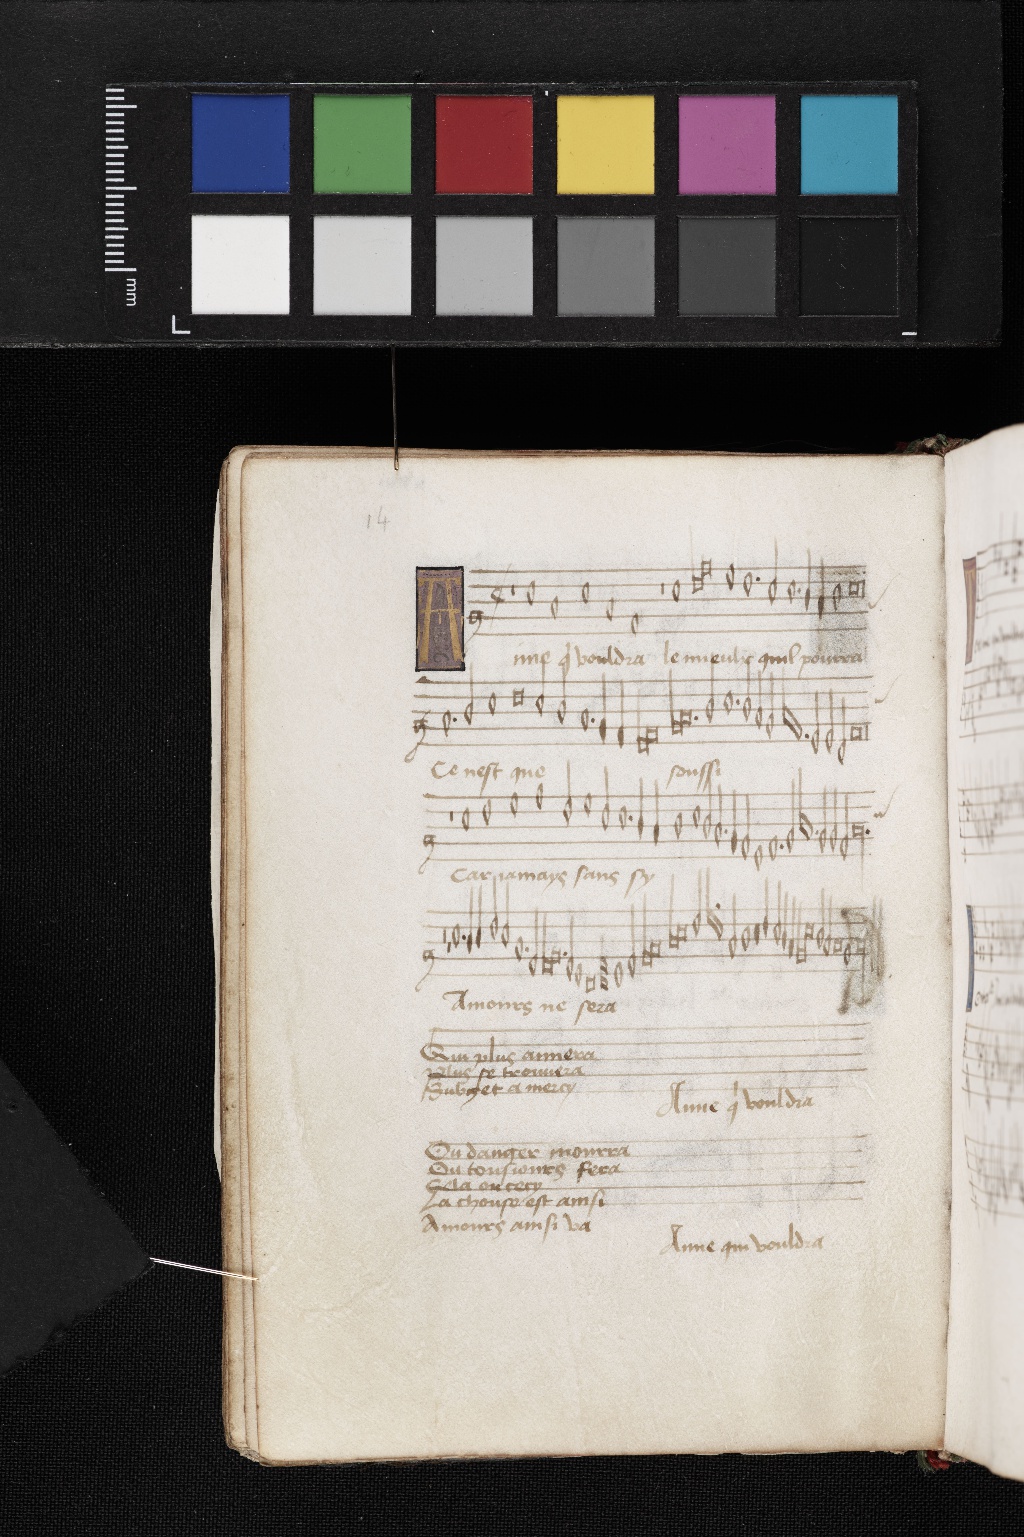 mm
14
Aime q vouldra le mieulx quil pourra
Ce nest que soussi
Car jamays sans sy
Amours ne sera
Qui plus aimera
Plus se trouvera
Subget a mercy
Aime q vouldra
Ou danger mourra
Ou tousiours sera
Cela ou cecy
La chouse est ainsi
Amours ainsi va
Aime qui vouldra